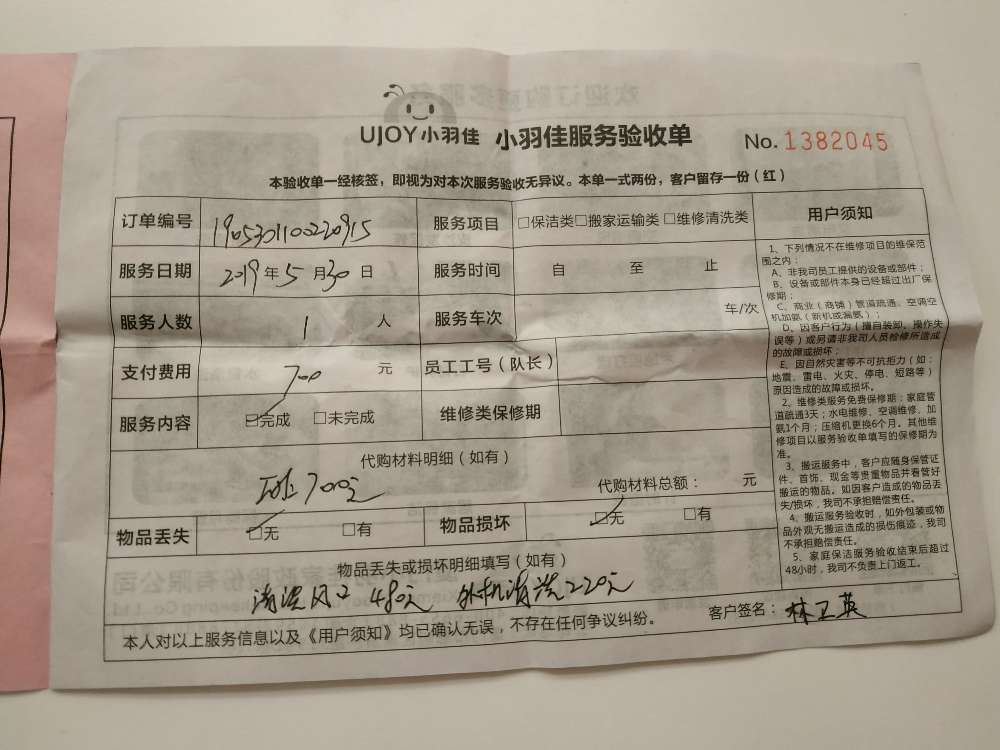 UJOY小羽佳 小羽佳服务验收单 No.1382045
本验收单一经核签，即视为对本次服务验收无异议。本单一式两份，客户留存一份（红）
订单编号 190530110022091​5 服务项目 □保洁类□搬家运输类 □维修清洗类
服务日期 2019年5月30日 服务时间 自 至 止
服务人数 1 人 服务车次 车/次
支付费用 700 元 员工工号（队长）
服务内容 ☑完成 □未完成 维修类保修期
代购材料明细（如有）
700元 代购材料总额： 元
物品丢失 ☑无 □有 物品损坏 ☑无 □有
物品丢失或损坏明细填写（如有）
清洗风口 480元 外机清洗220元
本人对以上服务信息以及《用户须知》均已确认无误，不存在任何争议纠纷。 客户签名：林卫英
用户须知
1、下列情况不在维修项目的维保范
围之内：
A、非我司员工提供的设备或部件；
B、设备或部件本身已经超过出厂保
修期；
C、商业（商铺）管道疏通、空调空
机加氨（新机或漏氨）；
D、因客户行为（擅自装卸、操作失
误等）或另请非我司人员检修所造成
的故障或损坏；
E、因自然灾害等不可抗拒力（如：
地震、雷电、火灾、停电、短路等）
原因造成的故障或损坏。
2、维修类服务免费保修期：家庭管
道疏通3天；水电维修、空调维修、加
氨1个月；压缩机更换6个月。其他维
修项目以服务验收单填写的保修期为
准。
3、搬运服务中，客户应随身保管证
件、首饰、现金等贵重物品并看管好
搬运的物品。如因客户造成的物品丢
失/损坏，我司不承担赔偿责任。
4、搬运服务验收时，如外包装或物
品外观无搬运造成的损伤痕迹，我司
不承担赔偿责任。
5、家庭保洁服务验收结束后超过
48小时，我司不负责上门返工。